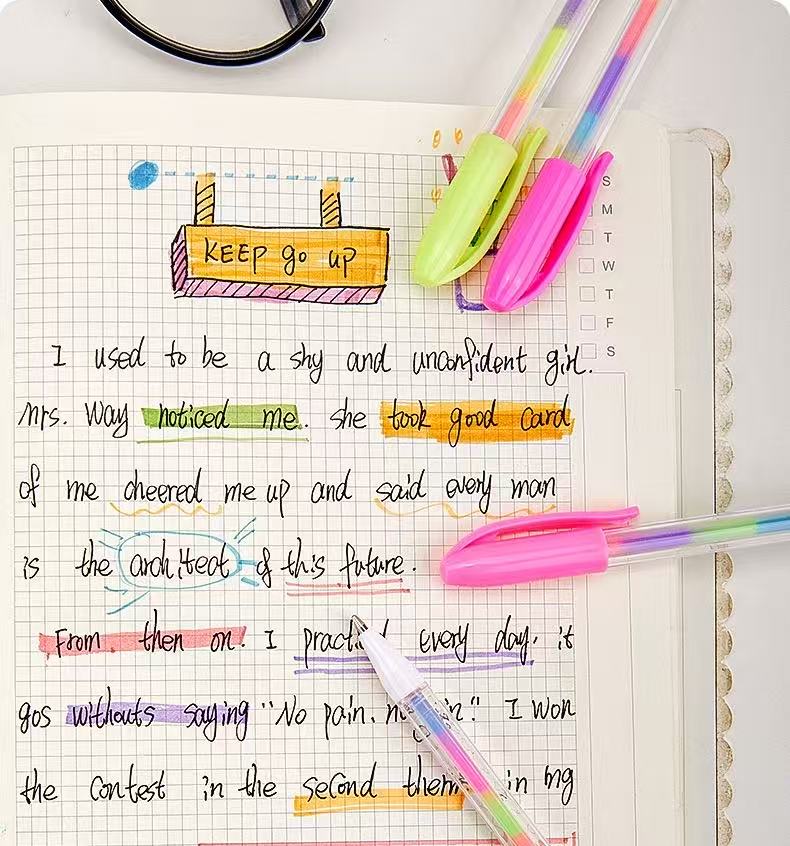 KEEP go up
S
M
T
W
T
F
S
I used to be a shy and unconfident girl.
Mrs. Way noticed me. she took good card
of me cheered me up and said every man
is the architect of this future.
From then on. I every day. it
gos withouts saying "No pain. I won
the contest in the second in